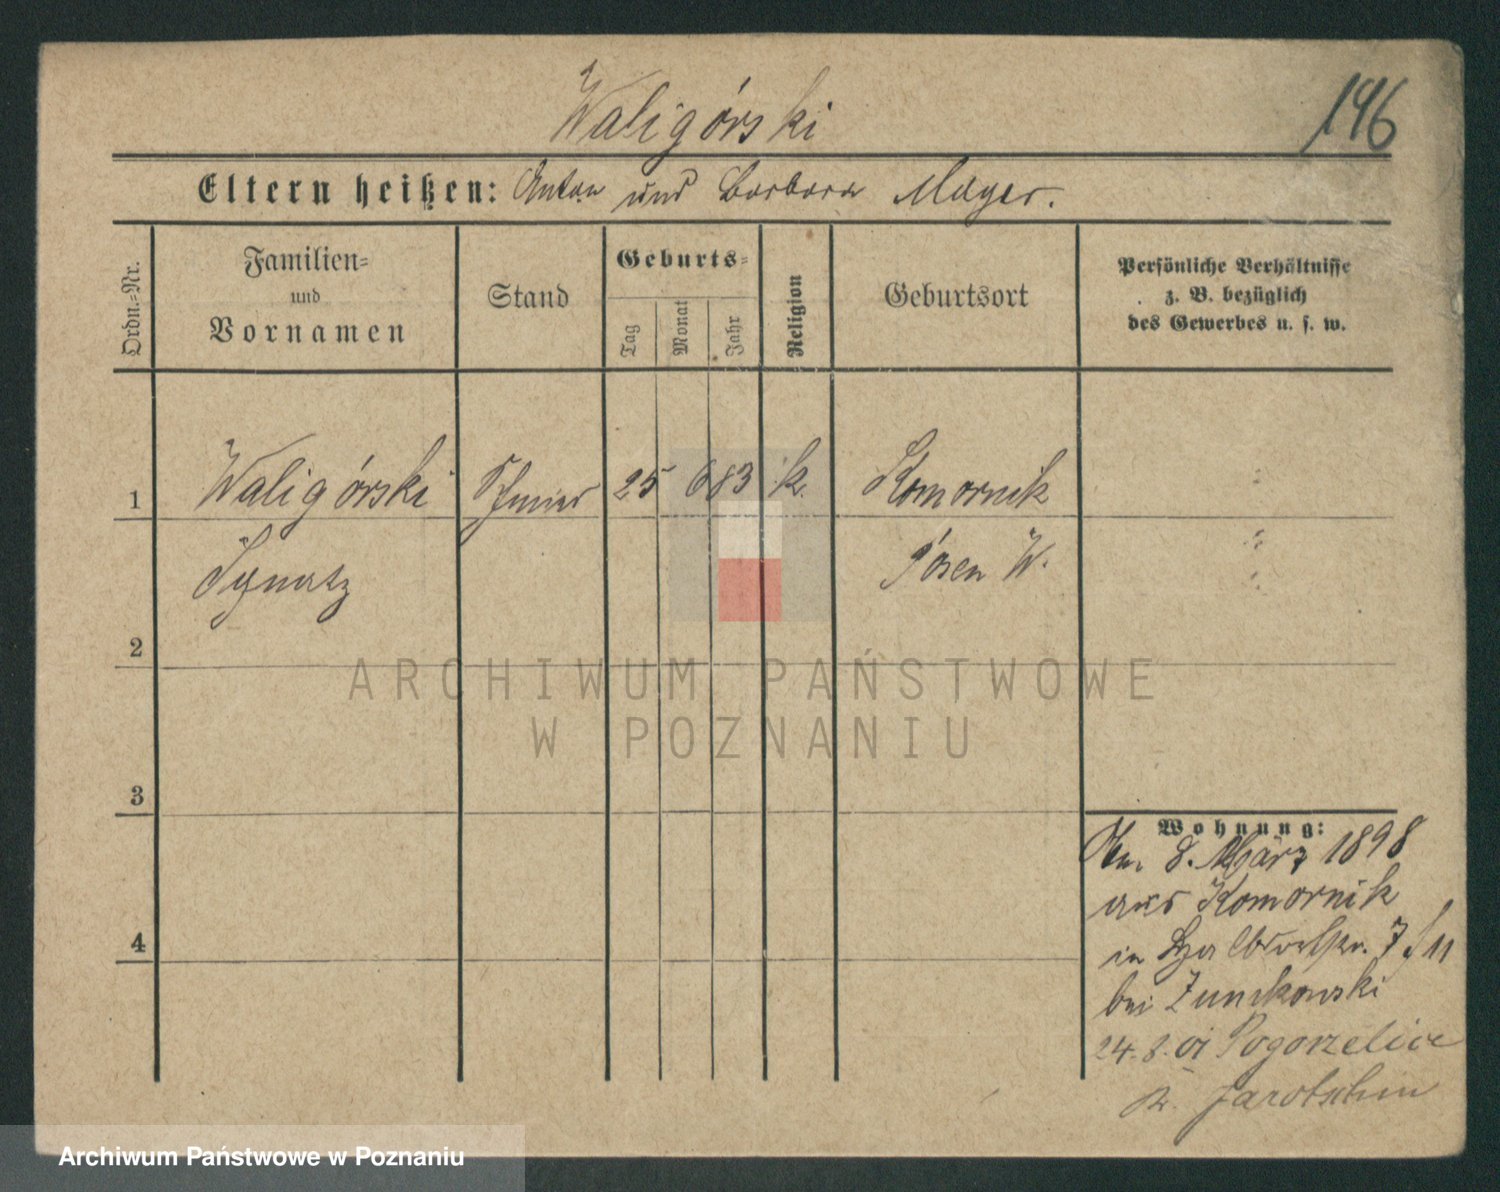 Waligórski
146
Eltern heißen: Anton und Barbara Mayer.
Ordn.-Nr.
Familien-
und
Vornamen
Stand
Geburts-
Tag
Monat
Jahr
Religion
Geburtsort
Persönliche Verhältnisse
z. B. bezüglich
des Gewerbes u. s. w.
1
Waligórski
25
6
83
k.
Komornik
Ignatz
Posen W.
2
3
4
Wohnung:
8. März 1898
aus Komornik
in
bei
24. 8. 01 Pogorzelice
Kr. Jarotschin
ARCHIWUM PAŃSTWOWE
W POZNANIU
Archiwum Państwowe w Poznaniu